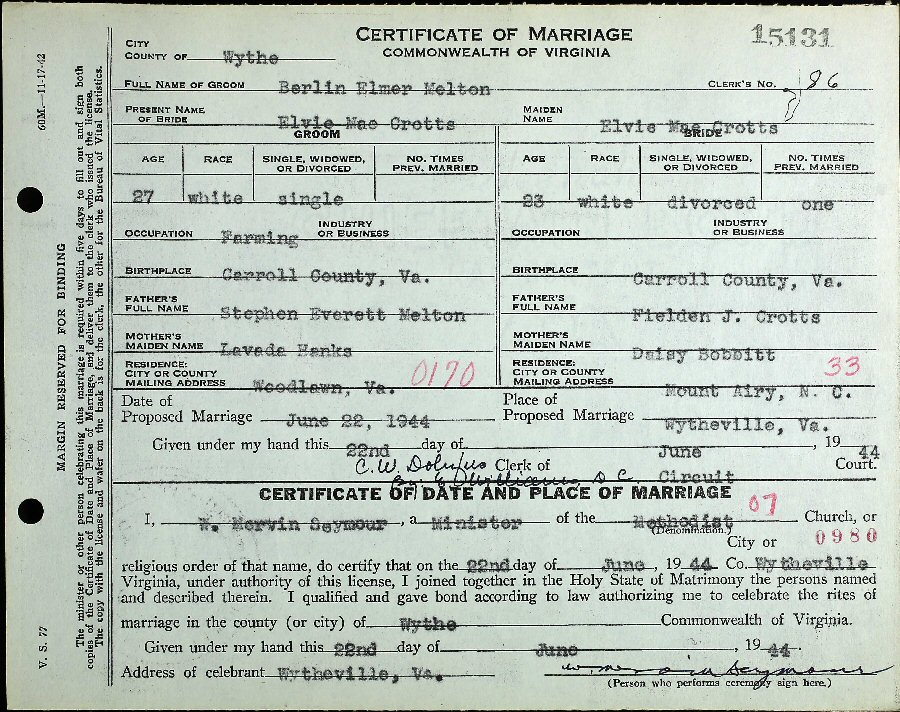 CERTIFICATE OF MARRIAGE
COMMONWEALTH OF VIRGINIA
15131
CITY
COUNTY OF Wythe
FULL NAME OF GROOM Berlin Elmer Melton CLERK'S NO. 86
PRESENT NAME OF BRIDE Elvie Mae Crotts MAIDEN NAME Elvie Mae Crotts
GROOM BRIDE
AGE RACE SINGLE, WIDOWED, OR DIVORCED NO. TIMES PREV. MARRIED AGE RACE SINGLE, WIDOWED, OR DIVORCED NO. TIMES PREV. MARRIED
27 white single 23 white divorced one
OCCUPATION Farming INDUSTRY OR BUSINESS OCCUPATION INDUSTRY OR BUSINESS
BIRTHPLACE Carroll County, Va. BIRTHPLACE Carroll County, Va.
FATHER'S FULL NAME Stephen Everett Melton FATHER'S FULL NAME Fielden J. Crotts
MOTHER'S MAIDEN NAME Lavada Hanks MOTHER'S MAIDEN NAME Daisy Bobbitt
RESIDENCE: CITY OR COUNTY MAILING ADDRESS Woodlawn, Va. 0170 RESIDENCE: CITY OR COUNTY MAILING ADDRESS Mount Airy, N. C. 33
Date of Proposed Marriage June 22, 1944 Place of Proposed Marriage Wytheville, Va.
Given under my hand this 22nd day of June, 19 44
C. W. Clerk of Circuit Court.
D C.
CERTIFICATE OF DATE AND PLACE OF MARRIAGE
07
I, W. Mervin Seymour, a Minister of the Methodist Church, or
(Denomination.)
City or 0980
religious order of that name, do certify that on the 22nd day of June, 19 44 Co. Wytheville
Virginia, under authority of this license, I joined together in the Holy State of Matrimony the persons named
and described therein. I qualified and gave bond according to law authorizing me to celebrate the rites of
marriage in the county (or city) of Wythe Commonwealth of Virginia.
Given under my hand this 22nd day of June, 19 44
Address of celebrant Wytheville, Va. W Mervin Seymour
(Person who performs ceremony sign here.)
60M.—11-17-42
MARGIN RESERVED FOR BINDING
V. S. 77
The minister or other person celebrating this marriage is required within five days to fill out and sign both
copies of the Certificate of Date and Place of Marriage, and deliver them to the clerk who issued the license.
The copy with the license and wafer on the back is for the clerk, the other for the Bureau of Vital Statistics.